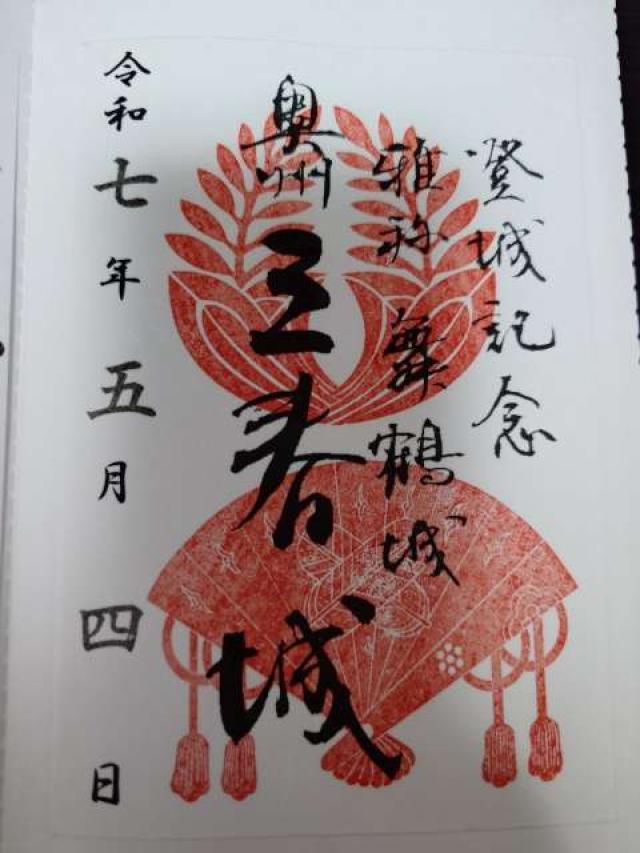 登城記念
雅称 舞鶴城
奥州 三春城
令和七年五月四日